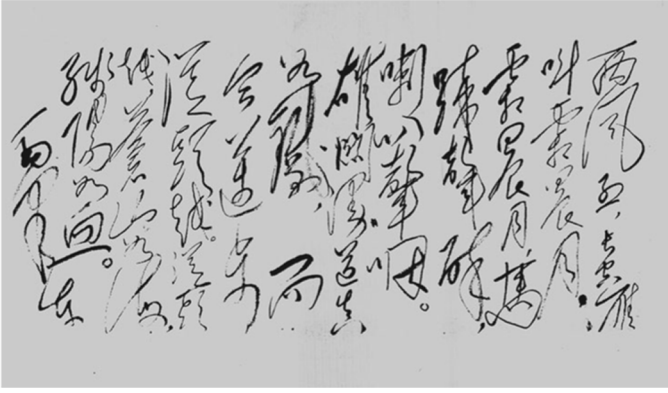 西风烈,长空雁
叫霜晨月。
霜晨月,馬
蹄聲碎,
喇叭聲咽。
雄関漫道真
如鐵,而
今邁步
從頭越。從頭
越,蒼山如海,
残陽如血。